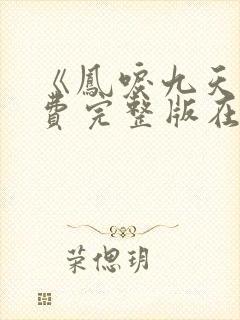 《鳳唳九天
费完整版在
荣偲玥